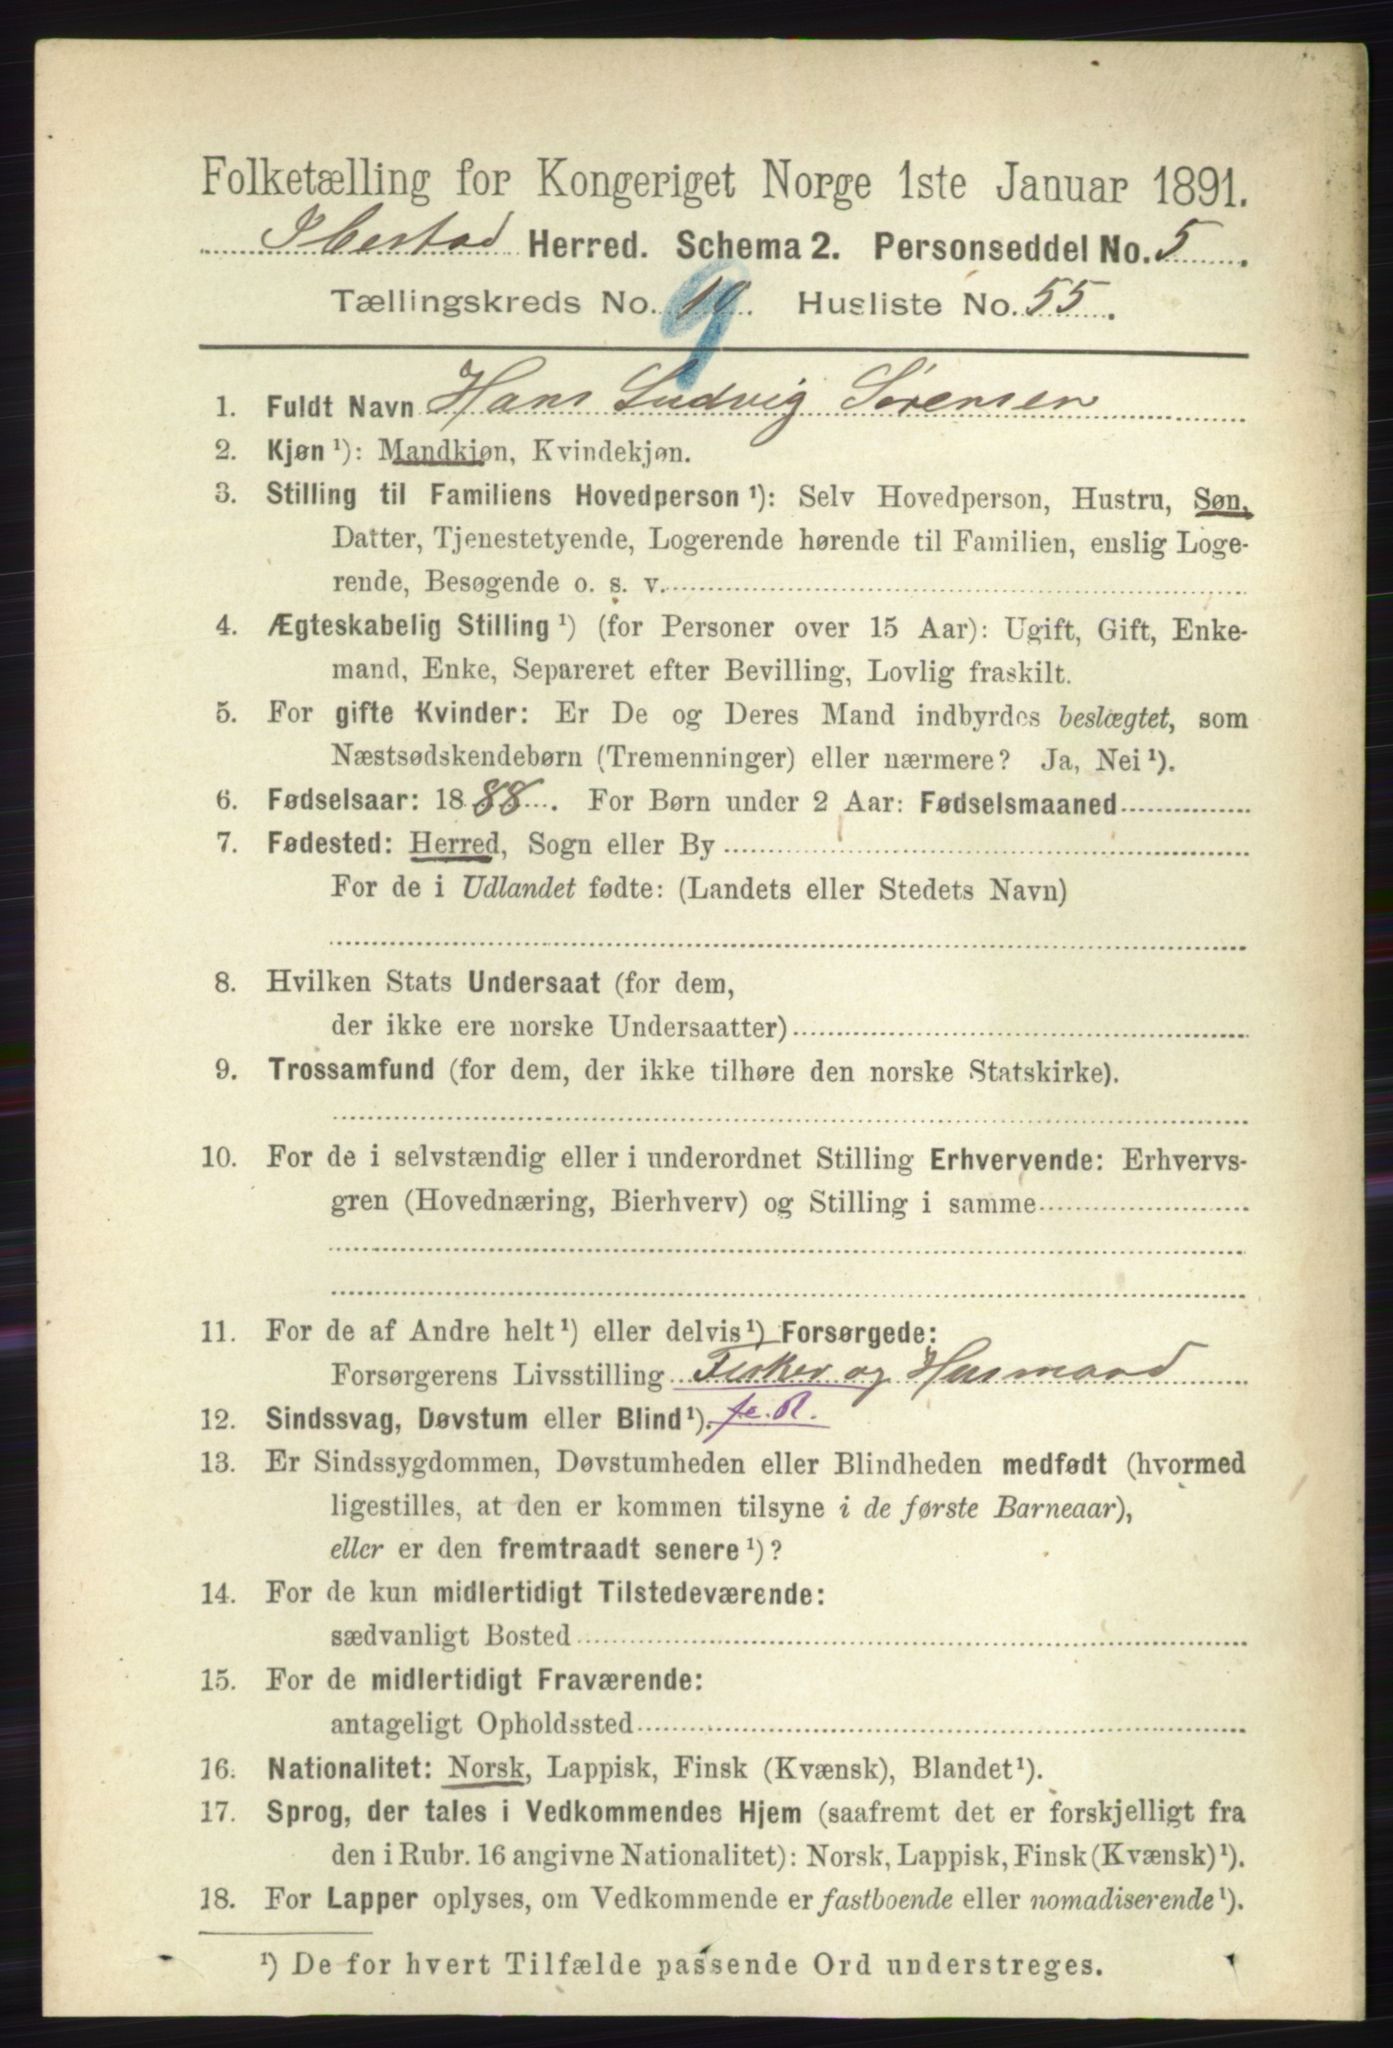 Folketælling for Kongeriget Norge 1ste Januar 1891.
Ibestad Herred. Schema 2. Personseddel No. 5.
Tællingskreds No. 10. Husliste No. 55.
9
1. Fuldt Navn Hans Ludvig Sørensen
2. Kjøn ¹): Mandkjøn, Kvindekjøn.
3. Stilling til Familiens Hovedperson ¹): Selv Hovedperson, Hustru, Søn,
Datter, Tjenestetyende, Logerende hørende til Familien, enslig Loge-
rende, Besøgende o. s. v.
4. Ægteskabelig Stilling ¹) (for Personer over 15 Aar): Ugift, Gift, Enke-
mand, Enke, Separeret efter Bevilling, Lovlig fraskilt.
5. For gifte Kvinder: Er De og Deres Mand indbyrdes beslægtet, som
Næstsødskendebørn (Tremenninger) eller nærmere? Ja, Nei ¹).
6. Fødselsaar: 1888. For Børn under 2 Aar: Fødselsmaaned
7. Fødested: Herred, Sogn eller By
For de i Udlandet fødte: (Landets eller Stedets Navn)
8. Hvilken Stats Undersaat (for dem,
der ikke ere norske Undersaatter)
9. Trossamfund (for dem, der ikke tilhøre den norske Statskirke).
10. For de i selvstændig eller i underordnet Stilling Erhvervende: Erhvervs-
gren (Hovednæring, Bierhverv) og Stilling i samme
11. For de af Andre helt ¹) eller delvis ¹) Forsørgede:
Forsørgerens Livsstilling Fisker og Husmand
12. Sindssvag, Døvstum eller Blind ¹).
13. Er Sindssygdommen, Døvstumheden eller Blindheden medfødt (hvormed
ligestilles, at den er kommen tilsyne i de første Barneaar),
eller er den fremtraadt senere ¹)?
14. For de kun midlertidigt Tilstedeværende:
sædvanligt Bosted
15. For de midlertidigt Fraværende:
antageligt Opholdssted
16. Nationalitet: Norsk, Lappisk, Finsk (Kvænsk), Blandet ¹).
17. Sprog, der tales i Vedkommendes Hjem (saafremt det er forskjelligt fra
den i Rubr. 16 angivne Nationalitet): Norsk, Lappisk, Finsk (Kvænsk) ¹).
18. For Lapper oplyses, om Vedkommende er fastboende eller nomadiserende ¹).
¹) De for hvert Tilfælde passende Ord understreges.